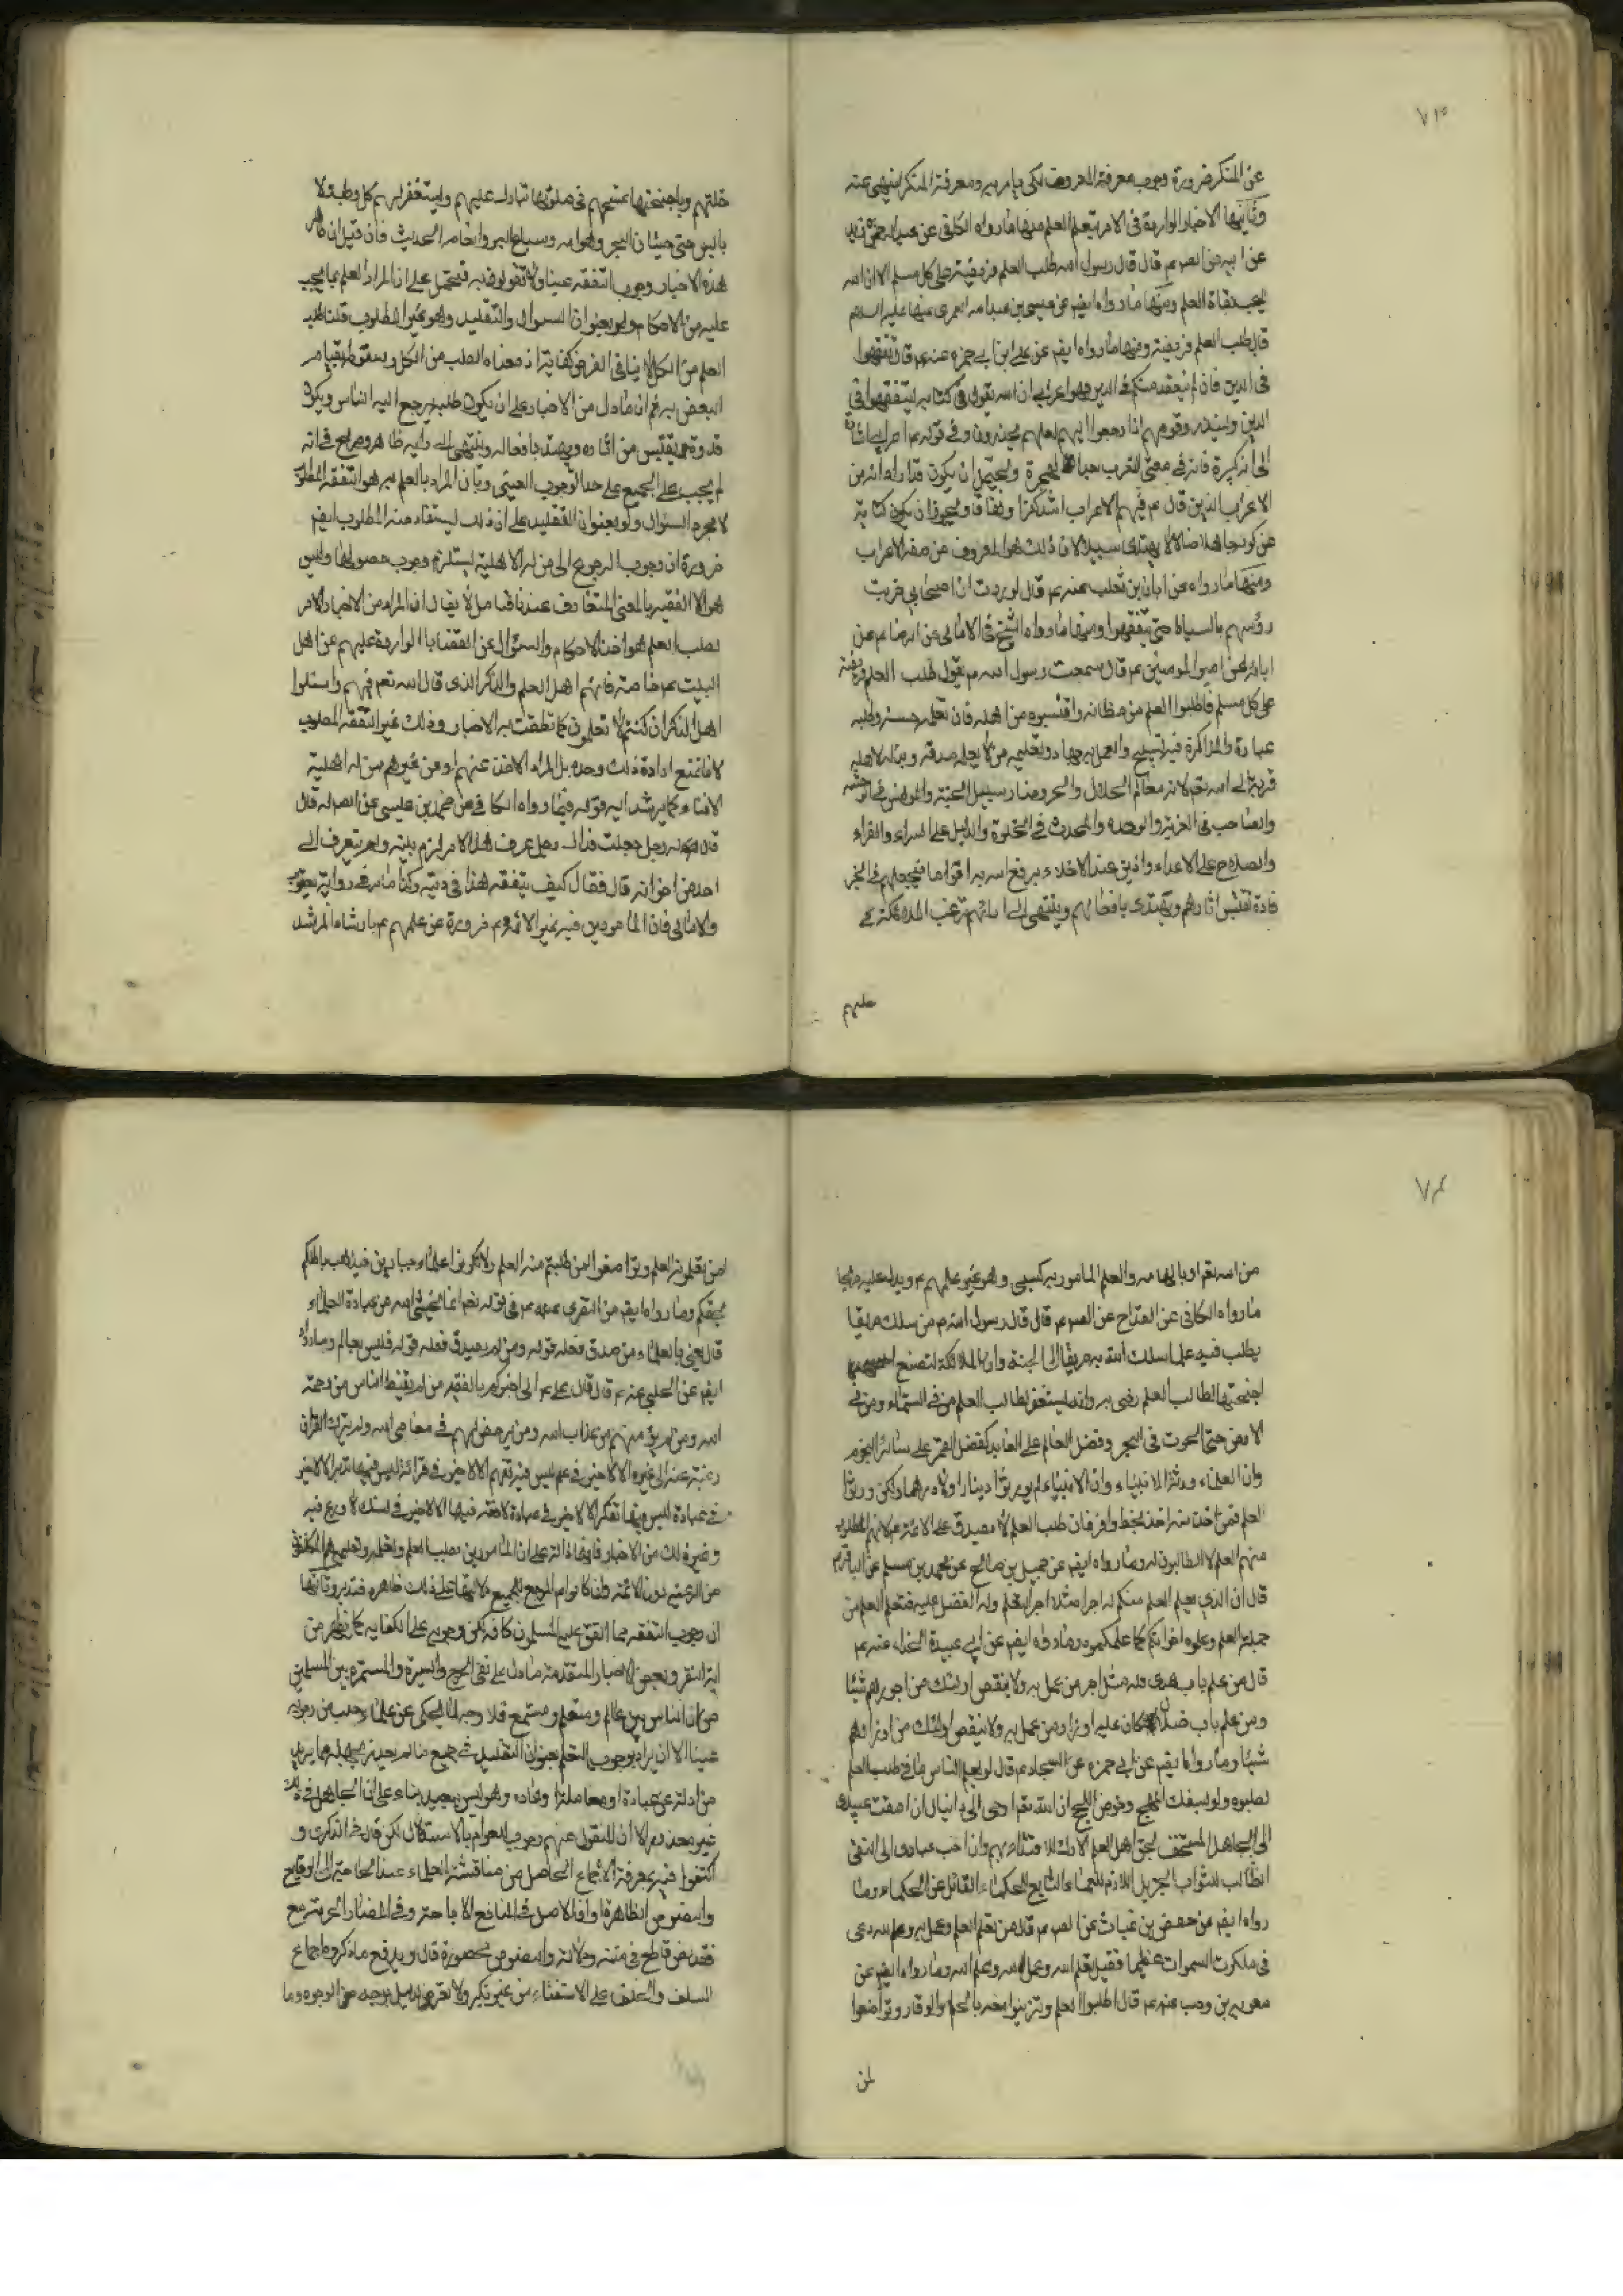 ٧٣
عن المنكر ضرورة وجوب معرفة المعروف لكي يامر به ومعرفة المنكر لينهى عنه
وثانيها الاخبار الواردة فى الامر بتعلم العلم منها ما رواه الكافى عن عبد الرحمن بن زيد
عن ابيه عن الصم عم قال قال رسول الله طلب العلم فريضة على كل مسلم الا ان الله
يحب بغاة العلم ومنها ما رواه ايضم عن عيسى بن عبد الله العمرى عنه عليه السلام
قال طلب العلم فريضة ومنها ما رواه ايضم عن على ابن ابى حمزه عنه عم قال تفقهوا
فى الدين فان لم يتفقه منكم فى الدين فهو اعرابى ان الله تقول فى كتابه ليتفقهوا فى
الدين ولينذروا قومهم اذا رجعوا اليهم لعلهم يحذرون وفى قوله عم اعرابى اشارة
الى انه كبيرة فانه فى معنى التعرب بعد الهجرة ويحتمل ان يكون قد اراد انه من
الاعراب الذين قال عم فيهم الاعراب اشد كفرا ونفاقا ويجوز ان يكون كناية
عن كونه جاهلا ضالا لا يهتدى سبيلا لان ذلك هو المعروف من صفة الاعراب
ومنها ما رواه عن ابان بن تغلب عنه عم قال لوددت ان اصحابى ضربت
رؤسهم بالسياط حتى يتفقهوا ومنها ما رواه الشيخ فى الامالى عن الرضا عم عن
ابائه عن امير المومنين عم قال سمعت رسول الله ص يقول طلب العلم فريضة
على كل مسلم فاطلبوا العلم من مظانه واقتبسوه من اهله فان تعلمه حسنة وطلبه
عبادة والمذاكرة فيه تسبيح والعمل به جهاد وتعليمه من لا يعلمه صدقة وبذله لاهله
قربة الى الله تعم لانه معالم الحلال والحرام ومنار سبيل الجنة والمونس فى الوحشه
والصاحب فى الغربة والوحده والمحدث فى الخلوة والدليل على السراء والضراء
والسلاح على الاعداء والزين عند الاخلاء يرفع الله به اقواما فيجعلهم فى الخير
قادة تقتبس اثارهم ويهتدى بافعالهم وينتهى الى ارائهم ترغب الملائكة فى
خلتهم وباجنحتها تمسحهم فى صلوتها تبارك عليهم ويستغفر لهم كل رطب ولا
يابس حتى حيتان البحر وهوامه وسباع البر وانعامه الحديث فان قيل ان
هذه الاخبار وجوب التفقه عينا ولا تقولون به فتحمل على ان المراد العلم بما يجب
عليه من الاحكام ولو بعنوان السوال والتقليد وهو غير المطلوب قلنا طلب
العلم من الكل لا ينافى الفرض كفاية اذ معناه الطلب من الكل وسقوطه بقيام
البعض به ثم ان ما دل من الاخبار على ان يكون طلبه يرجع اليه الناس ويكون
قدوة يقتبس من اثاره ويهتد بافعاله وينتهى الى رايه ظاهر وصريح فى انه
لم يجب على الجميع على حد الوجوب العينى وبان المراد بالعلم به هو التفقه المطلوب
لا مجرد السئوال ولو بعنوان التقليد على ان ذلك ليستفاد منه المطلوب ايضم
ضرورة ان وجوب الرجوع الى من له الاهلية يستلزم وجوب حصولها وليس
هو الا الفقيه بالمعنى المتعارف عندنا فتامل لا يقال ان المراد من الاخبار الامر
بطلب العلم هو اخذ الاحكام والسئوال عن القضايا الواردة عليهم عن اهل
البيت عم خاصة فانهم اهل العلم والذكر الذى قال الله تعم فيهم واسئلوا
اهل الذكر ان كنتم لا تعلمون كما نطقت به الاخبار وذلك غير التفقه المطلوب
لانا نمنع ارادة ذلك وحده بل المراد الاخذ عنهم او عن غيرهم من له اهلية
الافتاء كما يرشد اليه قوله فيما رواه الكافى عن محمد بن عيسى عن الصم له قال
قال له رجل جعلت فداك رجل عرف هذا الامر لزم بيته ولم يتعرف الى
احد من اخوانه قال فقال كيف يتفقه هذا فى دينه وكذا ما مر فى رواية
والامالى فان المامورين فيه غير الائمه عم ضرورة عن علمهم عم بارشاد المرشد
عليهم
٧٤
من الله تعم او بالهامه والعلم المامور به كسبى وهو غير علمهم عم ويدل عليه صريحا
ما رواه الكافى عن القداح عن الصم عم قال قال رسول الله ص من سلك طريقا
يطلب فيه علما سلك الله به طريقا الى الجنة وان الملائكة لتضع
اجنحتها لطالب العلم رضى به وانه ليستغفر لطالب العلم من فى السماء ومن فى
الارض حتى الحوت فى البحر وفضل العالم على العابد كفضل القمر على سائر النجوم
وان العلماء ورثة الانبياء وان الانبياء لم يورثوا دينارا ولا درهما ولكن ورثوا
العلم فمن اخذ منه اخذ بحظ وافر فان طلب العلم لا يصدق على الائمة عم لانهم المطلوب
منهم العلم لا الطالبون له وما رواه ايضم عن جميل بن صالح عن محمد بن مسلم عن الباقر عم
قال ان الذى يعلم العلم منكم له اجر مثل اجر المتعلم وله الفضل عليه فتعلموا العلم من
حملة العلم وعلموه اخوانكم كما علمكموه وما رواه ايضم عن ابى عبيدة الحذاء عنه عم
قال من علم باب هدى فله مثل اجر من عمل به ولا ينقص اولئك من اجورهم شيئا
ومن علم باب ضلال كان عليه اوزار من عمل به ولا ينقص اولئك من اوزارهم
شيئا وما رواه ايضم عن ابى حمزه عن السجاد عم قال لو يعلم الناس ما فى طلب العلم
لطلبوه ولو بسفك المهج وخوض اللجج ان الله تعم اوحى الى دانيال ان امقت عبيدى
الى الجاهل المستخف بحق اهل العلم التارك للاقتداء بهم وان احب عبادى الى التقى
الطالب للثواب الجزيل اللازم للعلماء التابع للحكماء القائل عن الحكماء وما
رواه ايضم عن حفص بن غياث عن الصم عم قال من تعلم العلم وعمل به وعلم لله دعى
فى ملكوت السموات عظيما فقيل تعلم لله وعمل لله وعلم لله وما رواه ايضم عن
معوية بن وهب عنه عم قال اطلبوا العلم وتزينوا معه بالحلم والوقار وتواضعوا
لمن
لمن تعلمونه العلم وتواضعوا لمن طلبتم منه العلم ولا تكونوا علماء جبارين فيذهب باطلكم
بحقكم وما رواه ايضم عن النضرى عنه عم فى قوله تعم انما يخشى الله من عباده العلماء
قال يعنى بالعلماء من صدق فعله قوله ومن لم يصدق فعله قوله فليس بعالم وما رواه
ايضم عن الحلبى عنه عم قال قال على عم الا اخبركم بالفقيه من لم يقنط الناس من رحمة
الله ومن لم يؤمنهم من عذاب الله ومن لم يرخص لهم فى معاصى الله ولم يترك القران
رغبة عنه الى غيره الا لا خير فى علم ليس فيه تفهم الا لا خير فى قرائة ليس فيها تدبر الا لا خير
فى عبادة ليس فيها تفكر الا لا خير فى عبادة لا فقه فيها الا لا خير فى نسك لا ورع فيه
وغير ذلك من الاخبار فانها دالة على ان المامورين بطلب العلم وتعلمه وتعليمه هم المكلفون
من الرعية دون الائمة وان كانوا هم المرجع للجميع دلالتها على ذلك ظاهره فتدبر وثالثها
ان وجوب التفقه مما اتفق عليه المسلمون كافه لكن وجوبه على الكفايه كما يظهر من
اية النفر وبعض الاخبار المتقدمة ما دل على نفى الحرج والسيرة والمستمره بين المسلمين
من ان الناس بين عالم ومتعلم ومستمع فلا وجه لما يحكى عن علماء حلب من وجوبه
عينا الا ان يراد بوجوب التعلم بعنوان التقليد فى جميع ما لم يعد بجهله مما يريد
من ادلة عن عبادة او معاملة او عاده وهو ليس ببعيد بناء على ان الجاهل فى ذلك
غير معذور الا ان المنقول عنهم وجوب العوام بالاستدلال لكن قال فى الذكرى و
اكتفوا فيه بمعرفة الاجماع الحاصل من مناقشة العلماء عند الحاجة الى الوقايع
والنصوص الظاهرة او ان الاصل فى المنافع الاباحة وفى المضار الحرمة مع
فقد نص قاطع فى متنه ودلالته والنصوص محصورة قال ويدفع ما ذكروه اجماع
السلف والخلف على الاستفتاء من غير نكير ولا تعرض لدليل بوجه من الوجوه وما